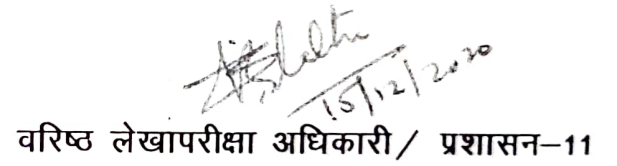 15/12/2020
वरिष्ठ लेखापरीक्षा अधिकारी/ प्रशासन-11